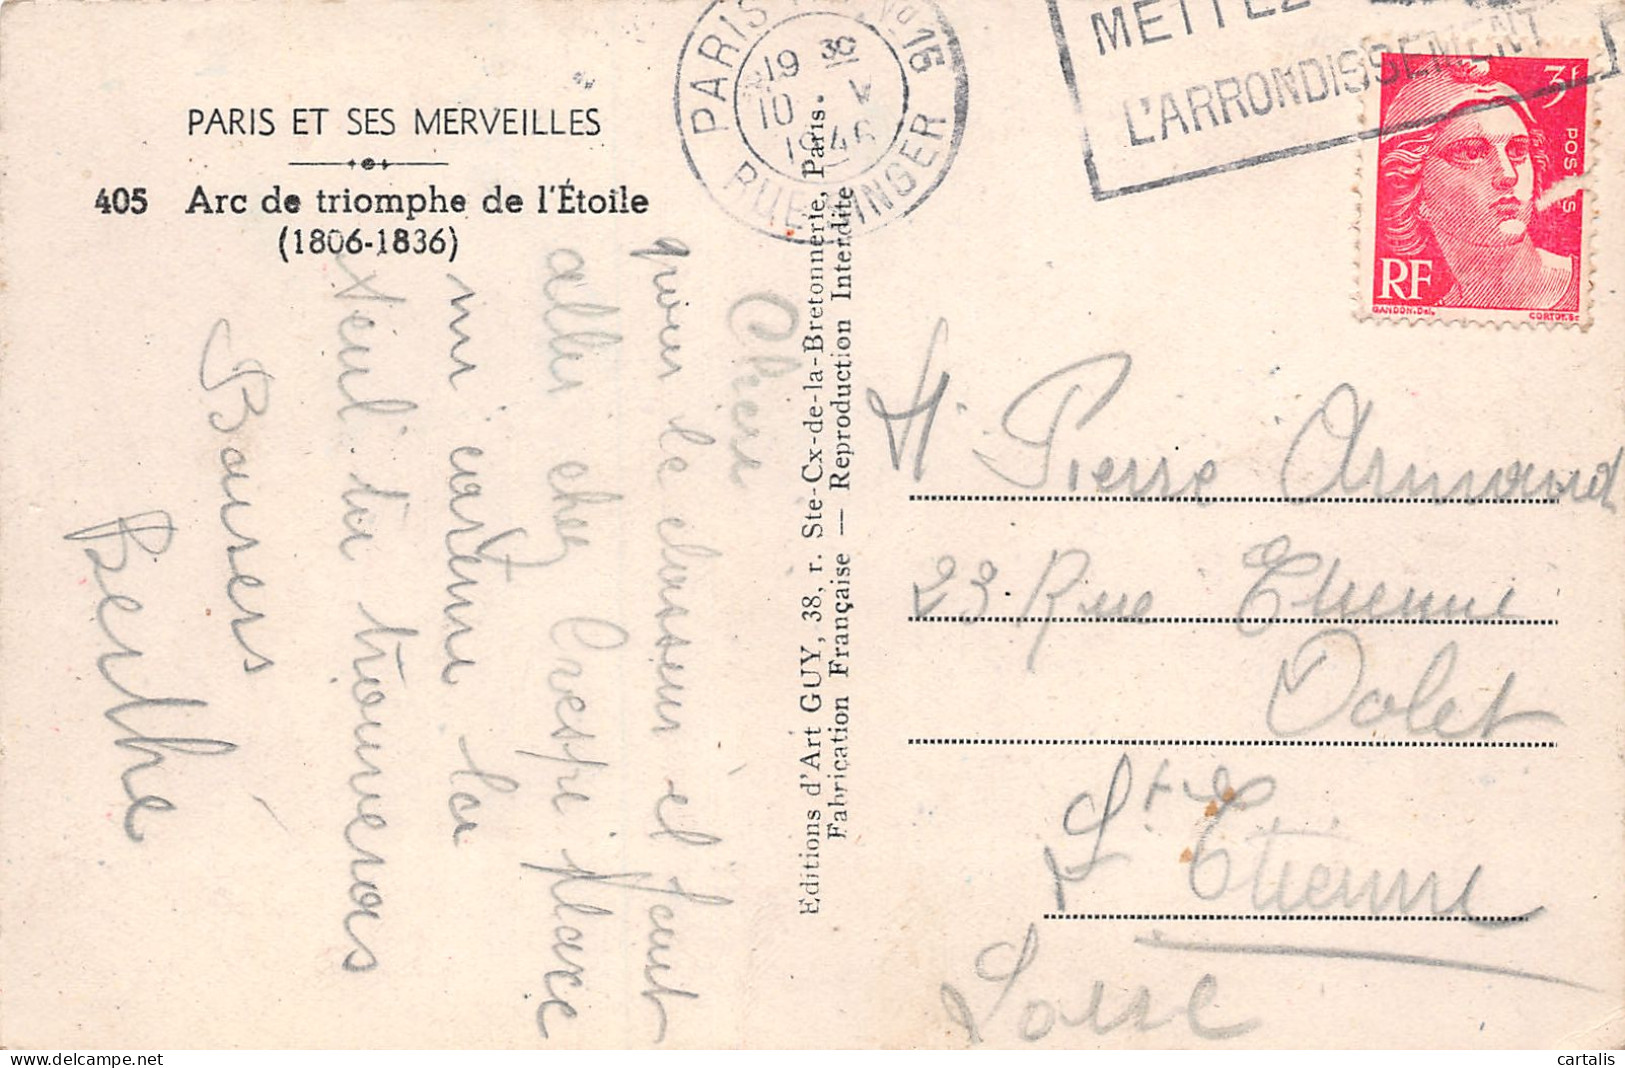 PARIS ET SES MERVEILLES
405 Arc de triomphe de l'Étoile
(1806-1836)
PARIS 15
19 30
10 V
1946
RUE SINGER
METTEZ
L'ARRONDISSEMENT
3F
POSTES
RF
GANDON.Del.
CORTOT.Sc
Editions d'Art GUY, 38, r. Ste-Cx-de-la-Bretonnerie, Paris.
Fabrication Française — Reproduction Interdite
pour le classeur il faut
aller chez Crespi place
mi carême la
seul tu trouveras
Baisers
Berthe
M. Pierre Armand
23 Rue Etienne
Dolet
St Etienne
Loire
cartalis